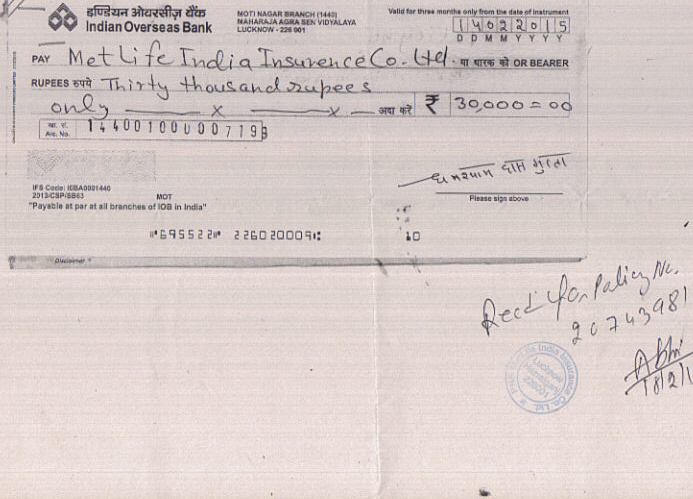 इण्डियन ओवरसीज़ बैंक
Indian Overseas Bank
MOTI NAGAR BRANCH (1440)
MAHARAJA AGRA SEN VIDYALAYA
LUCKNOW - 226 001
Valid for three months only from the date of instrument
14022015
D D M M Y Y Y Y
PAY MetLife India Insurence Co. Ltd. या धारक को OR BEARER
RUPEES रुपये Thirty thousand rupees
only x x अदा करें ₹ 30,000=00
खा. सं.
Acc. No. 144001000007198
IFS Code: IOBA0001440
2013/CSP/SB63 MOT
"Payable at par at all branches of IOB in India"
घनश्याम दास गुप्ता
Please sign above
⑈695522⑈ 226020009⑆ 10
Disclaimer
Recd for Policy No.
20743981
Abhi
18/2/1
India Insurance Co. Ltd.
Lucknow
Hazratganj
226001